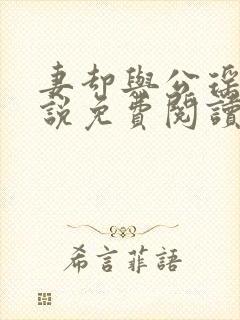 妻却與公瑤
說免費閱讀
希言菲語